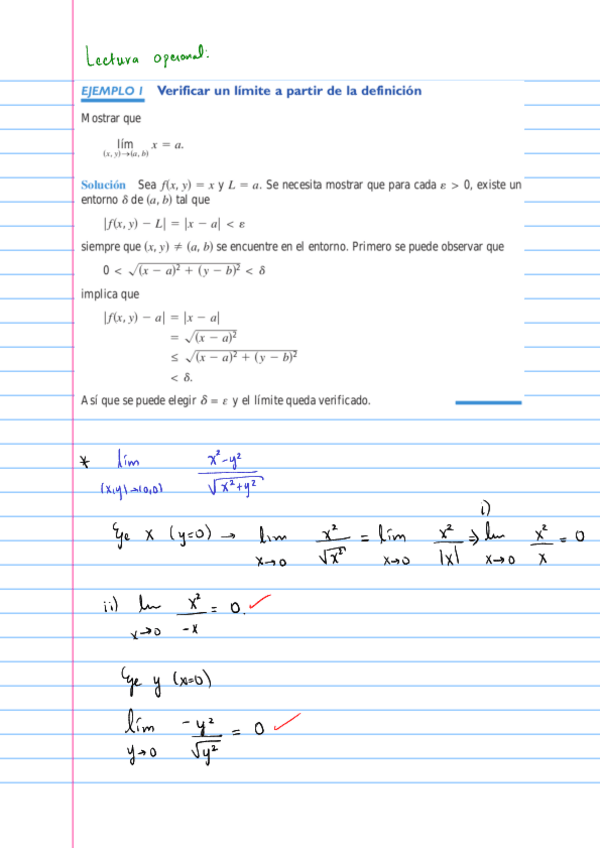 Lectura opcional:
EJEMPLO 1 Verificar un límite a partir de la definición
Mostrar que
lím x = a.
(x, y)→(a, b)
Solución Sea f(x, y) = x y L = a. Se necesita mostrar que para cada ε > 0, existe un
entorno δ de (a, b) tal que
|f(x, y) − L| = |x − a| < ε
siempre que (x, y) ≠ (a, b) se encuentre en el entorno. Primero se puede observar que
0 < √(x − a)² + (y − b)² < δ
implica que
|f(x, y) − a| = |x − a|
= √(x − a)²
≤ √(x − a)² + (y − b)²
< δ.
Así que se puede elegir δ = ε y el límite queda verificado.
* lím x²-y²
(x,y)→(0,0) √x²+y²
i)
Eje x (y=0) → lim x² = lím x² ⇒ lm x² = 0
x→0 √x² x→0 |x| x→0 x
ii) lm x² = 0. ✓
x→0 -x
Eje y (x=0)
lím -y² = 0 ✓
y→0 √y²